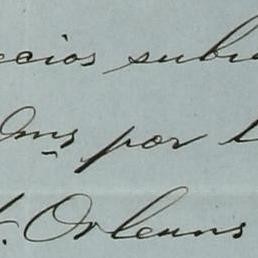 ecios subi
Qms por l
N. Orleans